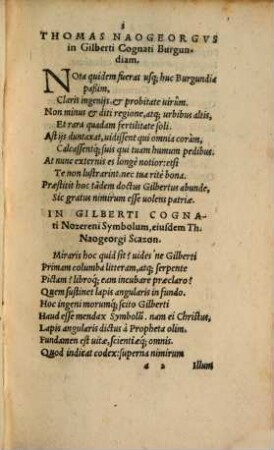 THOMAS NAOGEORGVS
in Gilberti Cognati Burgun-
diam.
NOta quidem fueras usq; huc Burgundia
passim,
Clarit ingenijs & probitate uirûm.
Non minus & diti regione, atq; urbibus altis,
Et rara quadam fertilitate soli.
Ast ijs duntaxat, uidissent qui omnia coràm,
Calcassentq; suis qui tuam humum pedibus.
At nunc externis es longè notior: etsi
Te non lustrarint, nec tua ritè bona.
Præstitit hoc tãdem doctus Gilbertus abunde,
Sic gratus nimirum esse uolens patriæ.
IN GILBERTI COGNA-
ti Nozereni Symbolum, eiusdem Th.
Naogeorgi Scazon.
Miraris hoc quid sit? uides ne Gilberti
Primam columba litteram, atq; serpente
Pictam? libroq; eam incubare præclaro?
Quem sustinet lapis angularis in fundo.
Hoc ingeni morumq; scito Gilberti
Haud esse mendax Symbolũ. nam ei Christus,
Lapis angularis dictus à Propheta olim,
Fundamen est uitæ, scientiæq; omnis.
Quod indicat codex: superna nimirum
a 2 Illum